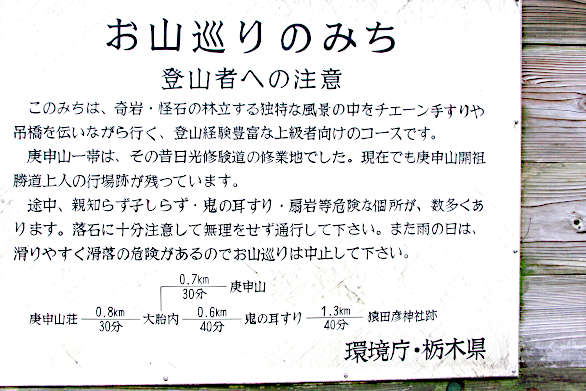 お山巡りのみち
登山者への注意
このみちは、奇岩・怪石の林立する独特な風景の中をチェーン手すりや
吊橋を伝いながら行く、登山経験豊富な上級者向けのコースです。
庚申山一帯は、その昔日光修験道の修業地でした。現在でも庚申山開祖
勝道上人の行場跡が残っています。
途中、親知らず子しらず・鬼の耳すり・扇岩等危険な個所が、数多くあ
ります。落石に十分注意して無理をせず通行して下さい。また雨の日は、
滑りやすく滑落の危険があるのでお山巡りは中止して下さい。
0.7km 庚申山
30分
庚申山荘 0.8km 大胎内 0.6km 鬼の耳すり 1.3km 猿田彦神社跡
30分 40分 40分
環境庁・栃木県